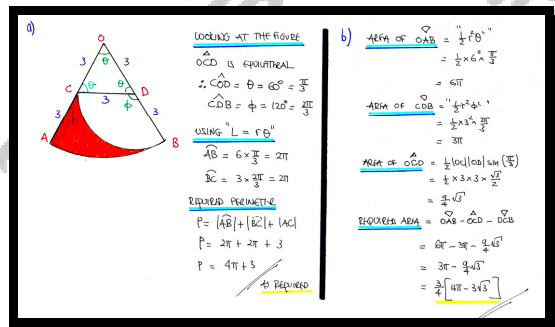 a)
O
3 θ 3
C θ θ D
3
φ
3 3
A B
LOOKING AT THE FIGURE
OCD IS EQUILATERAL
∴ CÔD = θ = 60° = π/3
CD̂B = φ = 120° = 2π/3
USING "L = rθ"
AB = 6 × π/3 = 2π
BC = 3 × 2π/3 = 2π
REQUIRED PERIMETER
P = |AB| + |BC| + |AC|
P = 2π + 2π + 3
P = 4π + 3
AS REQUIRED
b)
AREA OF OAB = "½r²θ"
= ½ × 6² × π/3
= 6π
AREA OF CDB = "½r²φ"
= ½ × 3² × 2π/3
= 3π
AREA OF OCD = ½|OC||OD| sin(π/3)
= ½ × 3 × 3 × √3/2
= 9/4 √3
REQUIRED AREA = OAB - OCD - DCB
= 6π - 3π - 9/4 √3
= 3π - 9/4 √3
= 3/4 [4π - 3√3]